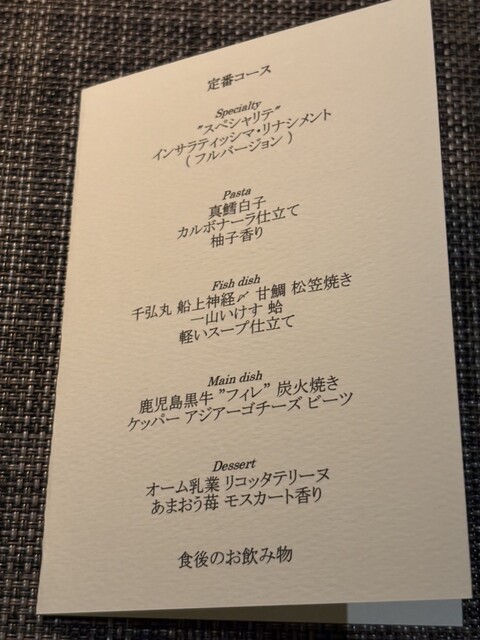 定番コース
Specialty
"スペシャリテ"
インサラティッシマ・リナシメント
( フルバージョン )
Pasta
真鱈白子
カルボナーラ仕立て
柚子香り
Fish dish
千弘丸 船上神経〆 甘鯛 松笠焼き
一山いけす 蛤
軽いスープ仕立て
Main dish
鹿児島黒牛 "フィレ" 炭火焼き
ケッパー アジアーゴチーズ ビーツ
Dessert
オーム乳業 リコッタテリーヌ
あまおう苺 モスカート香り
食後のお飲み物